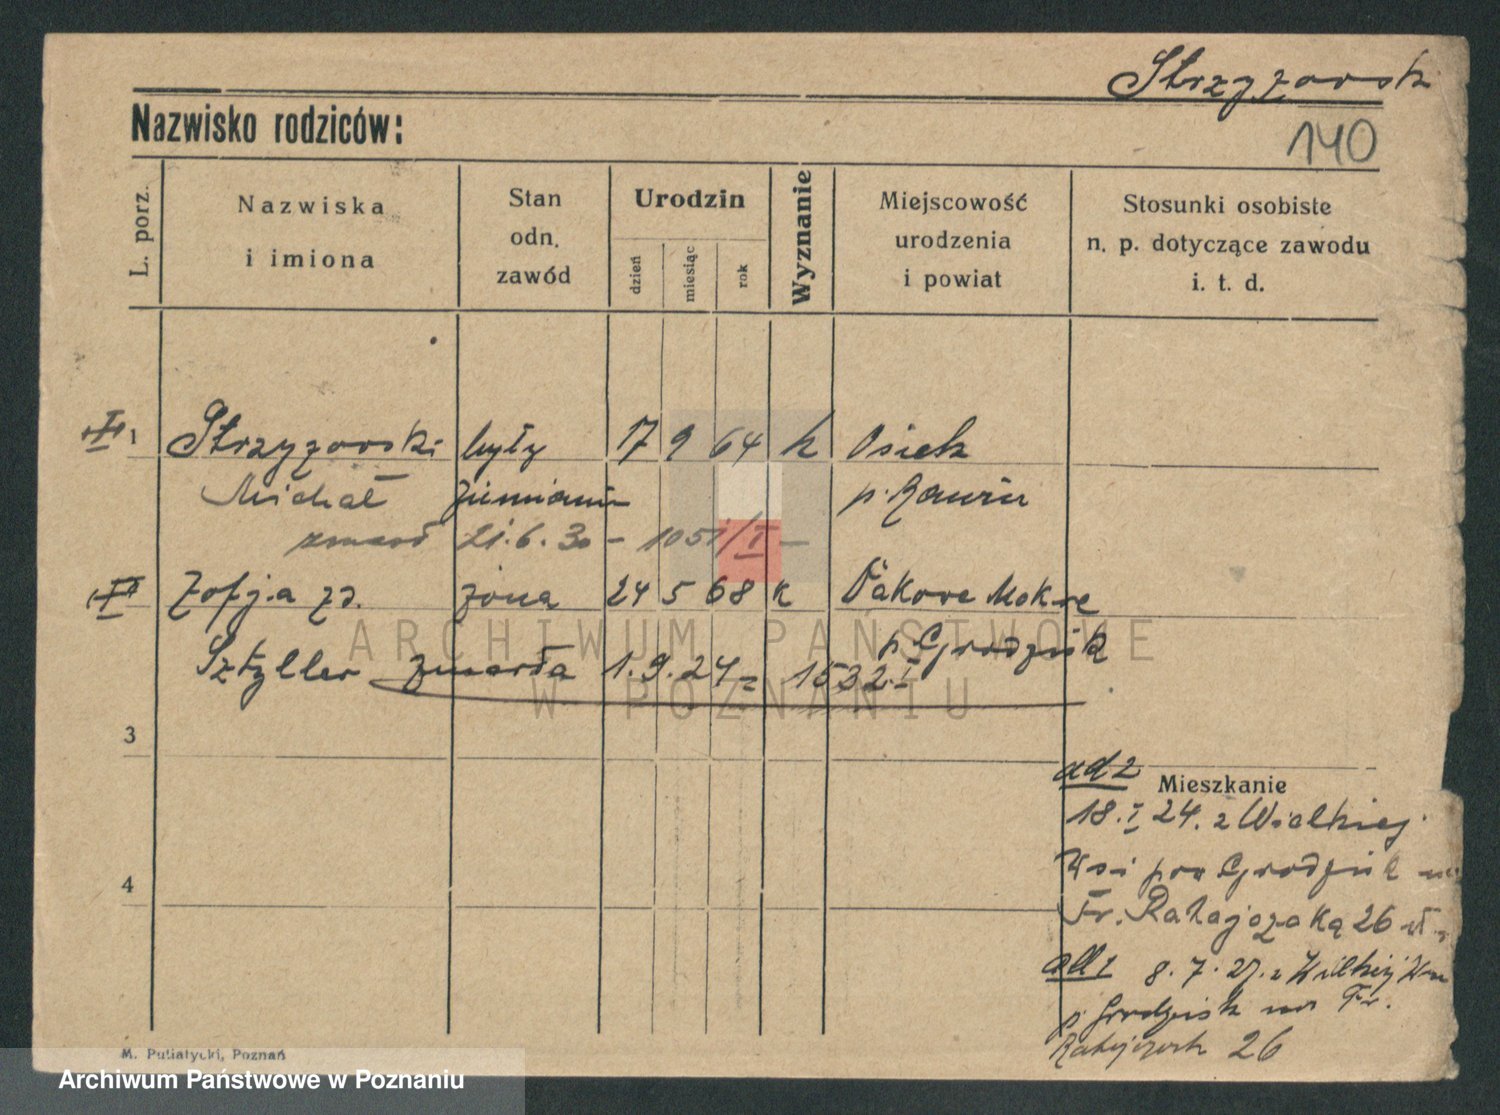 Strzyżowsk
Nazwisko rodziców:
140
L. porz.
Nazwiska
i imiona
Stan
odn.
zawód
Urodzin
dzień
miesiąc
rok
Wyznanie
Miejscowość
urodzenia
i powiat
Stosunki osobiste
n. p. dotyczące zawodu
i. t. d.
1 Strzyżowski były 17 9 64 k Osiek
Michał ziemianin p. Rawicz
zmarł 21.6.30 – 1051/I –
Zofja zd. żona 24 5 68 k Ptakowe Mokre
p. Grodzisk
Sztyller zmarła 1.9.24 – 1532.I
3
ad 2
Mieszkanie
18.I 24. z Wielkiej
Wsi pow Grodzisk na
Fr. Ratajczaka 26
4
ad 1 8.7.27. z Wielkiej Wsi
p. Grodzisk na Fr.
Ratajczak 26
M. Putiatycki, Poznań
ARCHIWUM PAŃSTWOWE
W POZNANIU
Archiwum Państwowe w Poznaniu